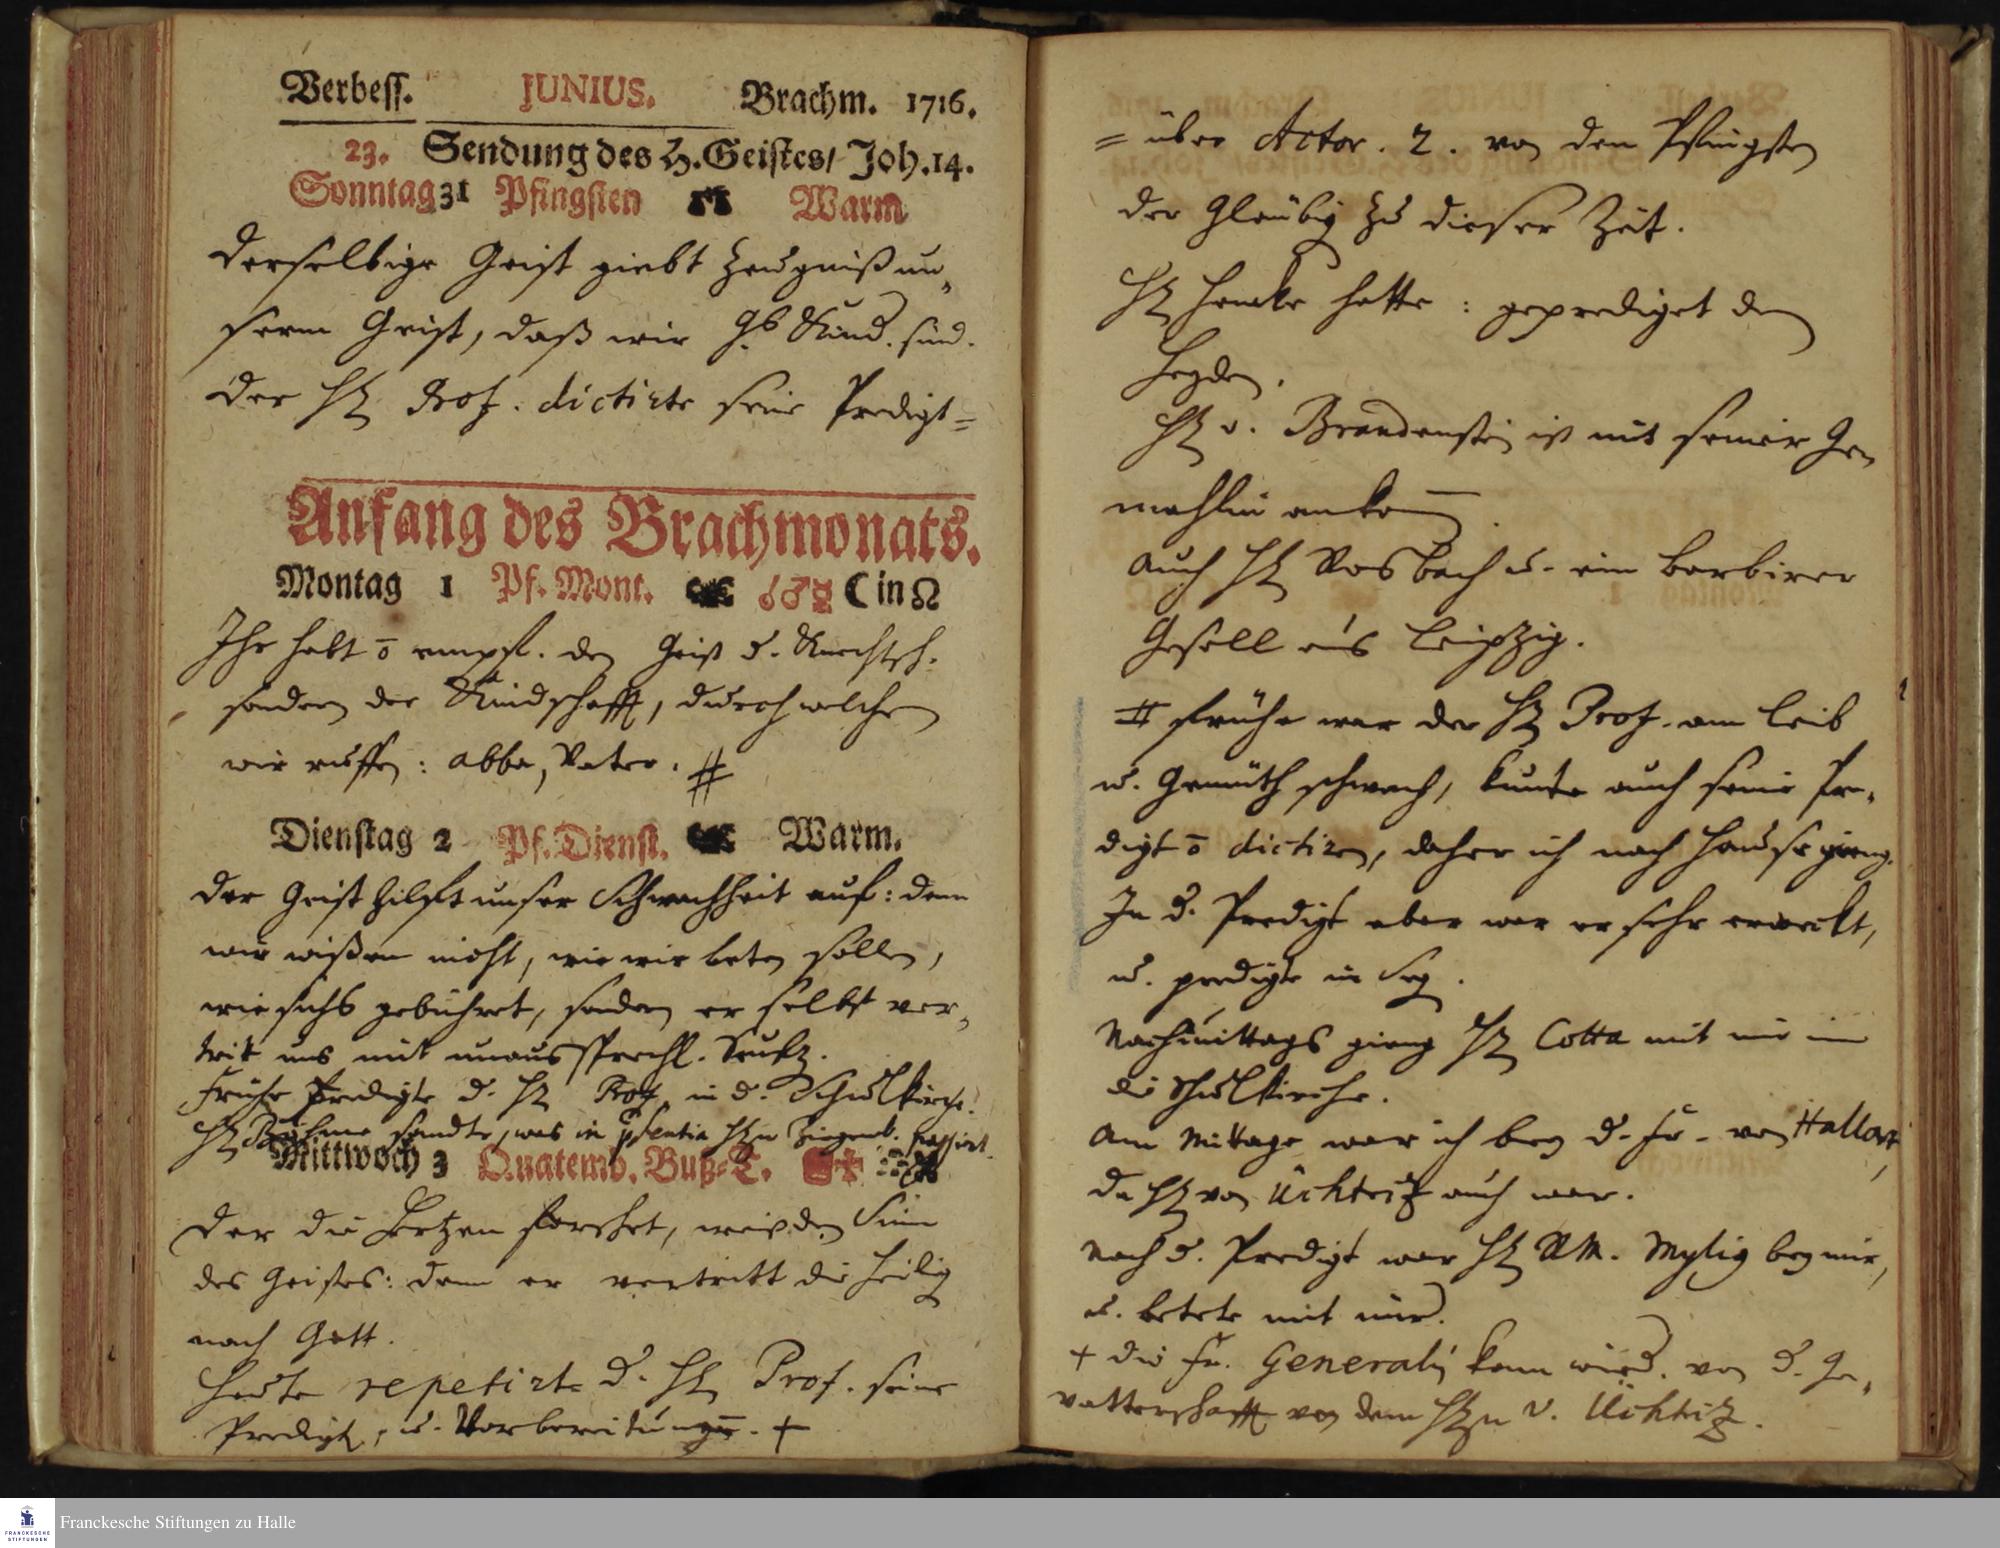 Verbess. JUNIUS. Brachm. 1716.
23. Sendung des H. Geistes/ Joh. 14.
Sonntag 31 Pfingsten Warm
Derselbige Geist giebt Zeugniß un-
serm Geist, daß wir Kind. sind.
Der H Prof. dictirte seine Predigt =
Anfang des Brachmonats.
Montag 1 Pf. Mont. ☌♂☿ ☾ in ☊
Ihr habt empf. den Geist d. Knechtsch.
sondern der Kindschafft, durch welchen
wir ruffen: abba, Vater. #
Dienstag 2 Pf. Dienst. Warm.
Der Geist hilft unser Schwachheit auf: denn
wir wißen nicht, wie wir beten sollen,
wie sichs gebühret, sondern er selbst ver-
trit uns mit unaussprechl. Seufz.
Frühe predigte d. H Prof. in d. Schulkirche.
H Böhme sandte, was in Ziegenb. passirt.
Mittwoch 3 Quatemb. Buß-T.
Der die Hertzen forschet, weiß den Sinn
des Geistes: denn er vertritt die Heilig
nach Gott.
Heute repetirt d. H Prof. seine
Predigt, u. Vorbereitung. +
= über Actor. 2. von den Pfingsten
der Gläubig zu dieser Zeit.
H hatte: geprediget den
H v. Brandenstein ist mit seiner Ge
mahlin ankom
auch H Rosbach u. ein Barbirer
Gesell aus Leipzig.
# frühe war der H Prof. am Leib
u. Gemüth schwach, kunte auch seine Pre-
digt dictiren, daher ich nach Hause gieng.
In d. Predigt aber war er sehr erweckt,
u. predigte in Seg.
Nachmittags gieng H Cotta mit mir in
die Schulkirche.
Am Mittage war ich bey d. Fr. von Hallart
da H von Üchtritz auch war.
Nach d. Predigt war H Mylig bey mir,
u. betete mit mir.
+ die Fr. Generalin kam wied. von d. Ge-
vatterschafft von dem H v. Üchtritz.
FRANCKESCHE STIFTUNGEN
Franckesche Stiftungen zu Halle